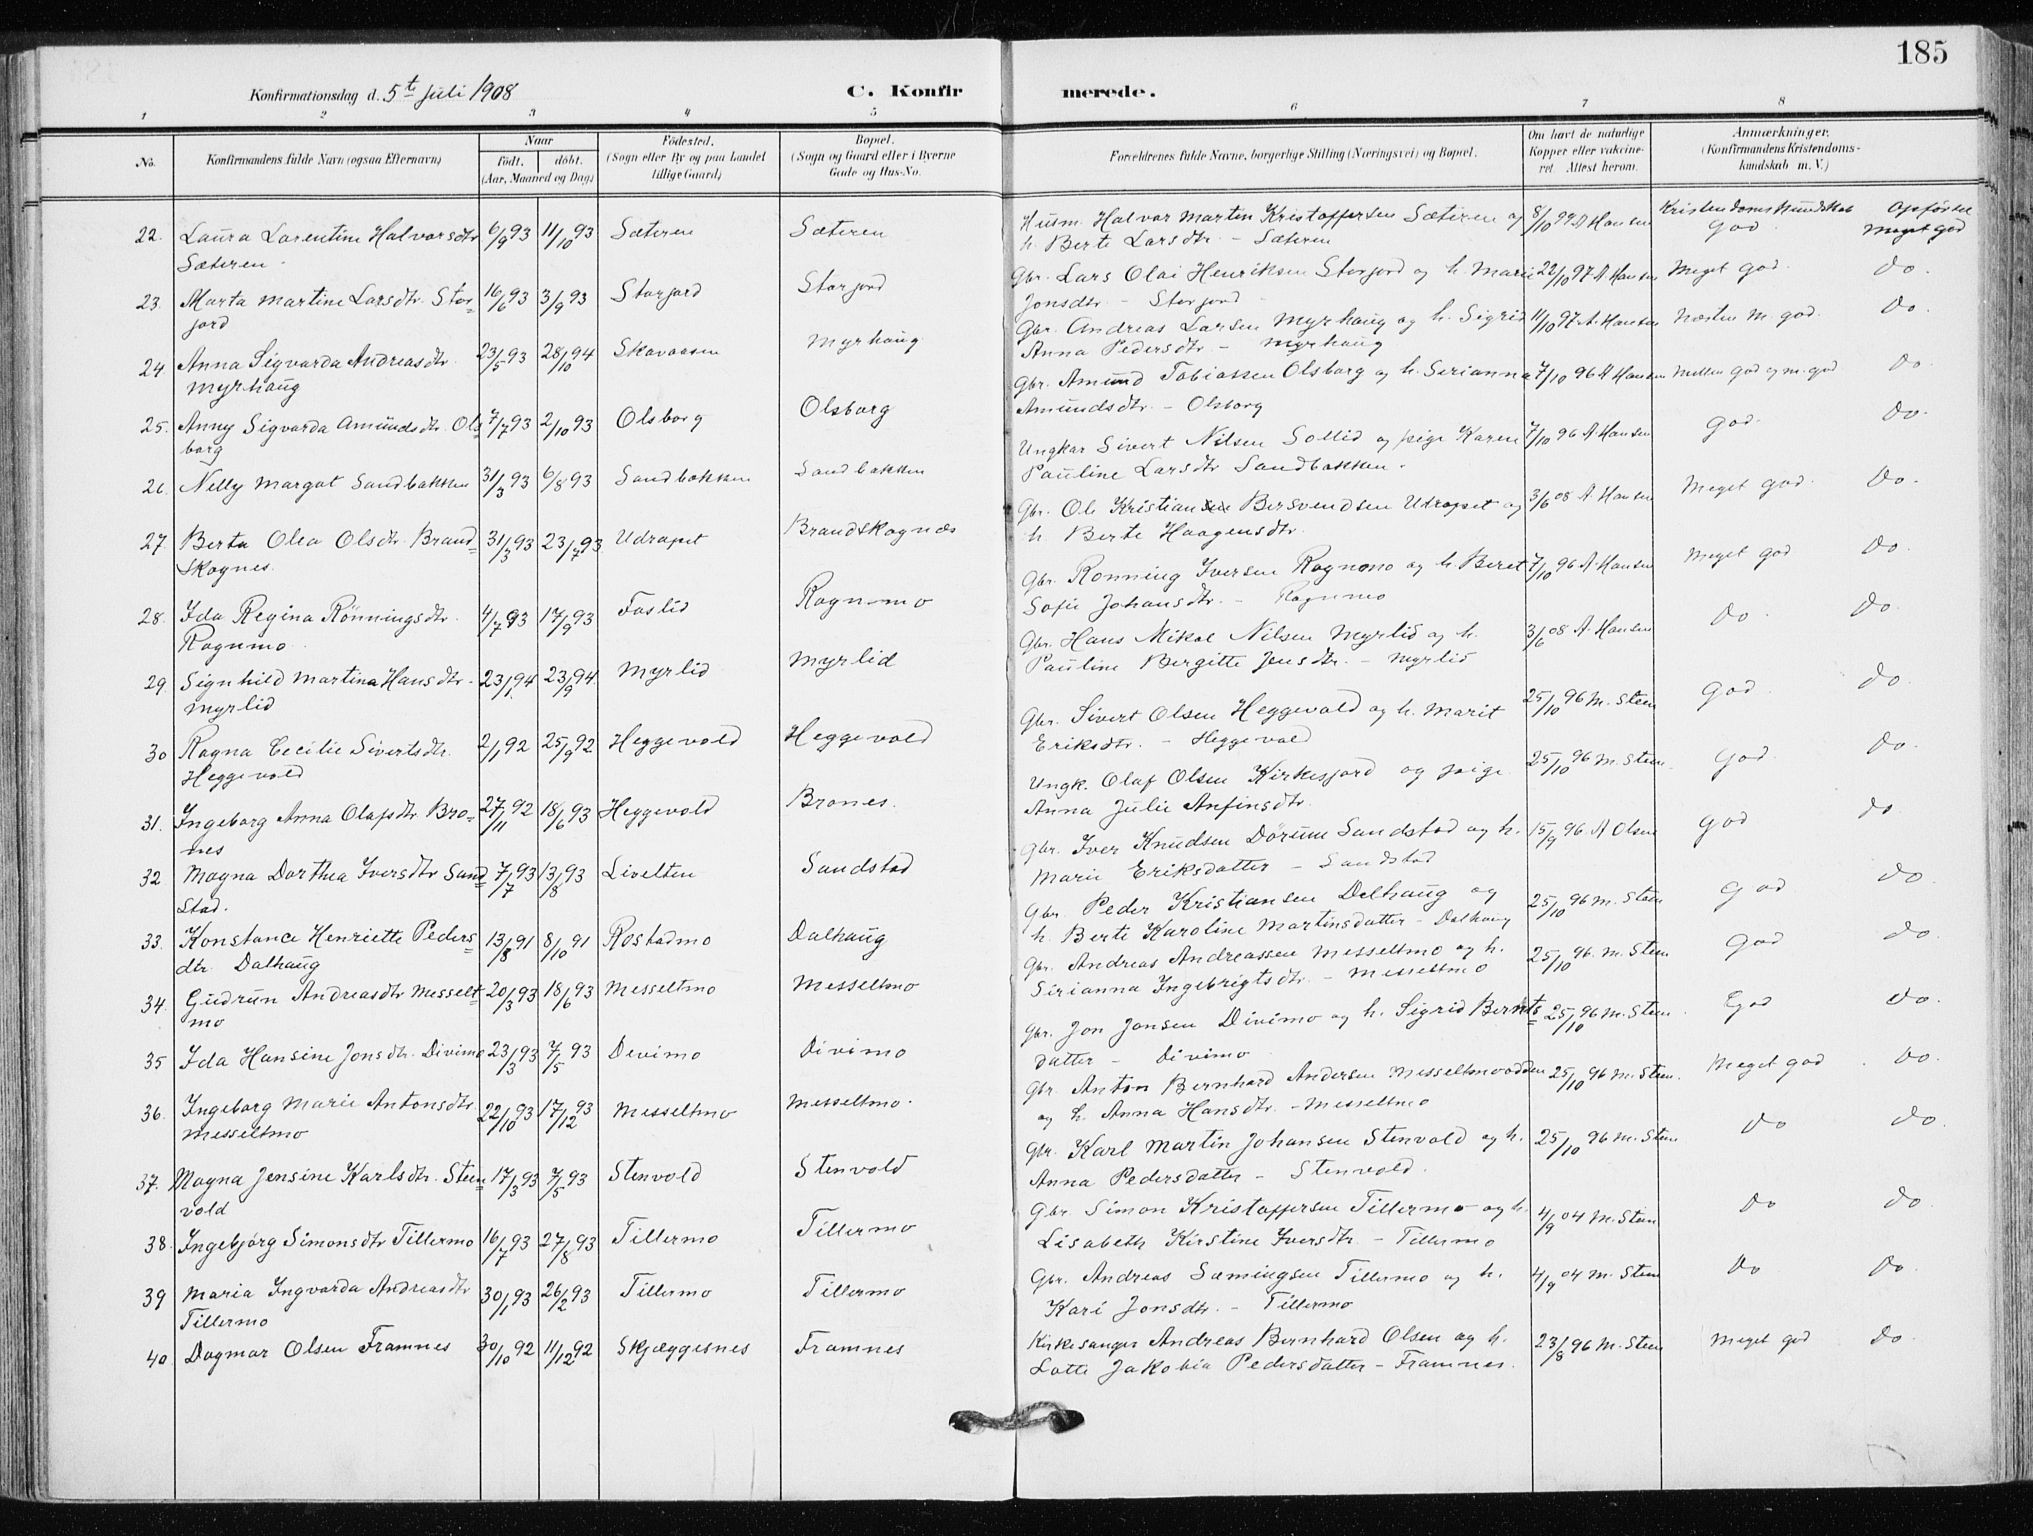 185
Konfirmationsdag d. 5te Juli 1908
C. Konfirmerede.
1 2 3 4 5 6 7 8
No. Konfirmandens fulde Navn (ogsaa Efternavn) Naar født. døbt. (Aar, Maaned og Dag) Fødested. (Sogn eller By og paa Landet tillige Gaard) Bopæl. (Sogn og Gaard eller i Byerne Gade og Hus-No. Forældrenes fulde Navne, borgerlige Stilling (Næringsvei) og Bopæl. Om havt de naturlige Kopper eller vakcineret. Attest herom. Anmærkninger. (Konfirmandens Kristendomskundskab m. V.)
22. Laura Larentine Halvorsdtr 6/9 93 11/10 93 Sæteren Sæteren Husm. Halvor Martin Kristoffersen Sæteren og 8/10 99 A Hansen Kristendomskundskab Opførsel
Sæteren. h. Berte Larsdtr. - Sæteren God Meget god
23. Marta Martine Larsdtr. Stor= 16/6 93 3/9 93 Storjord Storjord Gbr. Lars Olai Henriksen Storjord og h. Marie 22/10 97 A Hansen Meget god. Do.
jord Jonsdtr. - Storjord
24. Anna Sigvarda Andreasdtr. 23/5 93 28/10 94 Skavaasen Myrhaug Gbr. Andreas Larsen Myrhaug og h. Sigrid 11/10 97 A. Hansen Næsten m. god. Do.
Myrhaug Anna Pedersdtr - Myrhaug
25. Anny Sigvarda Amundsdtr. Ols= 7/7 93 2/10 93 Olsborg Olsborg Gbr. Amund Tobiassen Olsborg og h. Serianna 7/10 96 A Hansen Mellem god og m. god Do
borg Amundsdtr. - Olsborg
26. Nelly Margot Sandbakken 31/3 93 6/8 93 Sandbakken Sandbakken Ungkar Sivert Nilsen Sollid og pige Karen 7/10 96 A Hansen God. Do.
Pauline Larsdtr Sandbakken.
27. Berta Olea Olsdtr. Brand= 31/3 93 23/7 93 Udropet Brandskognæs Gbr. Ole Kristian Bersvendsen Udropet og 3/6 08 A Hansen Meget god. Do.
skognes. h. Berte Haagensdtr.
28. Ida Regina Rønningsdtr. 4/7 93 17/9 93 Foslid Rognmo Gbr. Rønning Iversen Rognmo og h. Beret 7/10 96 A Hansen Meget god Do.
Rognmo Sofie Johansdtr. - Rognmo
29. Signhild Martina Hansdtr. 23/1 94 23/9 94 Myrlid Myrlid Gbr. Hans Mikal Nilsen Myrlid og h. 3/6 08 A Hansen Do Do.
Myrlid Pauline Bergitte Jensdtr. - Myrlid
30 Ragna Cecilie Sivertsdtr. 2/1 92 25/9 92 Heggevold Heggevold Gbr. Sivert Olsen Heggevold og h. Marit 25/10 96 M. Steen God Do.
Heggevold Eriksdtr. - Heggevold
31. Ingeborg Anna Olafsdtr. Bro= 27/11 92 18/6 93 Heggevold Brones. Ungk. Olaf Olsen Kirkesjord og pige 25/10 96 M. Steen. God Do.
nes Anna Julie Anfinsdtr.
32 Magna Dorthea Iversdtr Sand= 7/7 93 13/8 93 Livelten Sandstad Gbr. Iver Knudsen Dørum Sandstad og h. 15/9 96. A Olsen God Do
stad. Marie Eriksdatter - Sandstad
33. Konstance Henriette Peders= 13/8 91 8/10 91 Rostadmo Dalhaug Gbr. Peder Kristiansen Dalhaug og 25/10 96 M. Steen God Do.
dtr. Dalhaug h. Berte Karoline Martinsdatter - Dalhaug
34. Gudrun Andreasdtr Messelt= 20/3 93 18/6 93 Messeltmo Messeltmo Gbr. Andreas Andreassen Messeltmo og h. 25/10 96. M. Steen God Do.
mo Sirianna Ingebrigtsdtr. - Messeltmo
35 Ida Hansine Jonsdtr. Divimo 23/3 93 7/5 93 Devimo Divimo Gbr. Jon Jonsen Divimo og h. Sigrid Bernts= 25/10 96 M. Steen God Do.
datter - Divimo
36. Ingeborg Marie Antonsdtr. 22/10 93 17/12 93 Messeltmo Messeltmo. Gbr. Anton Bernhard Andersen Messeltmoodden 25/10 96 M. Steen. Meget god. Do.
Messeltmo og h. Anna Hansdtr. - Messeltmo
37. Magna Jensine Karlsdtr. Steen= 17/3 93 7/5 93 Stenvold Stenvold Gbr. Karl Martin Johansen Stenvold og h. 25/10 96 M. Steen Do Do.
vold Anna Pedersdatter - Stenvold.
38. Ingebjørg Simonsdtr Tillermo 16/7 93 27/8 93 Tillermo Tillermo Gbr. Simon Kristoffersen Tillermo og h. 4/9 04 M. Steen Do Do.
Lisabeth Kirstine Iversdtr. - Tillermo
39 Maria Ingvarda Andreasdtr 30/1 93 26/2 93 Tillermo Tillermo Gbr. Andreas Sæmingsen Tillermo og h. 4/9 04 M. Steen Do Do.
Tillermo Kari Jonsdtr. - Tillermo
40. Dagmar Olsen Framnes 30/10 92 11/12 92 Skjæggesnes Framnes Kirkesanger Andreas Bernhard Olsen og h. 23/8 96 M. Steen Meget god Do.
Lotte Jakobia Pedersdatter - Framnes.